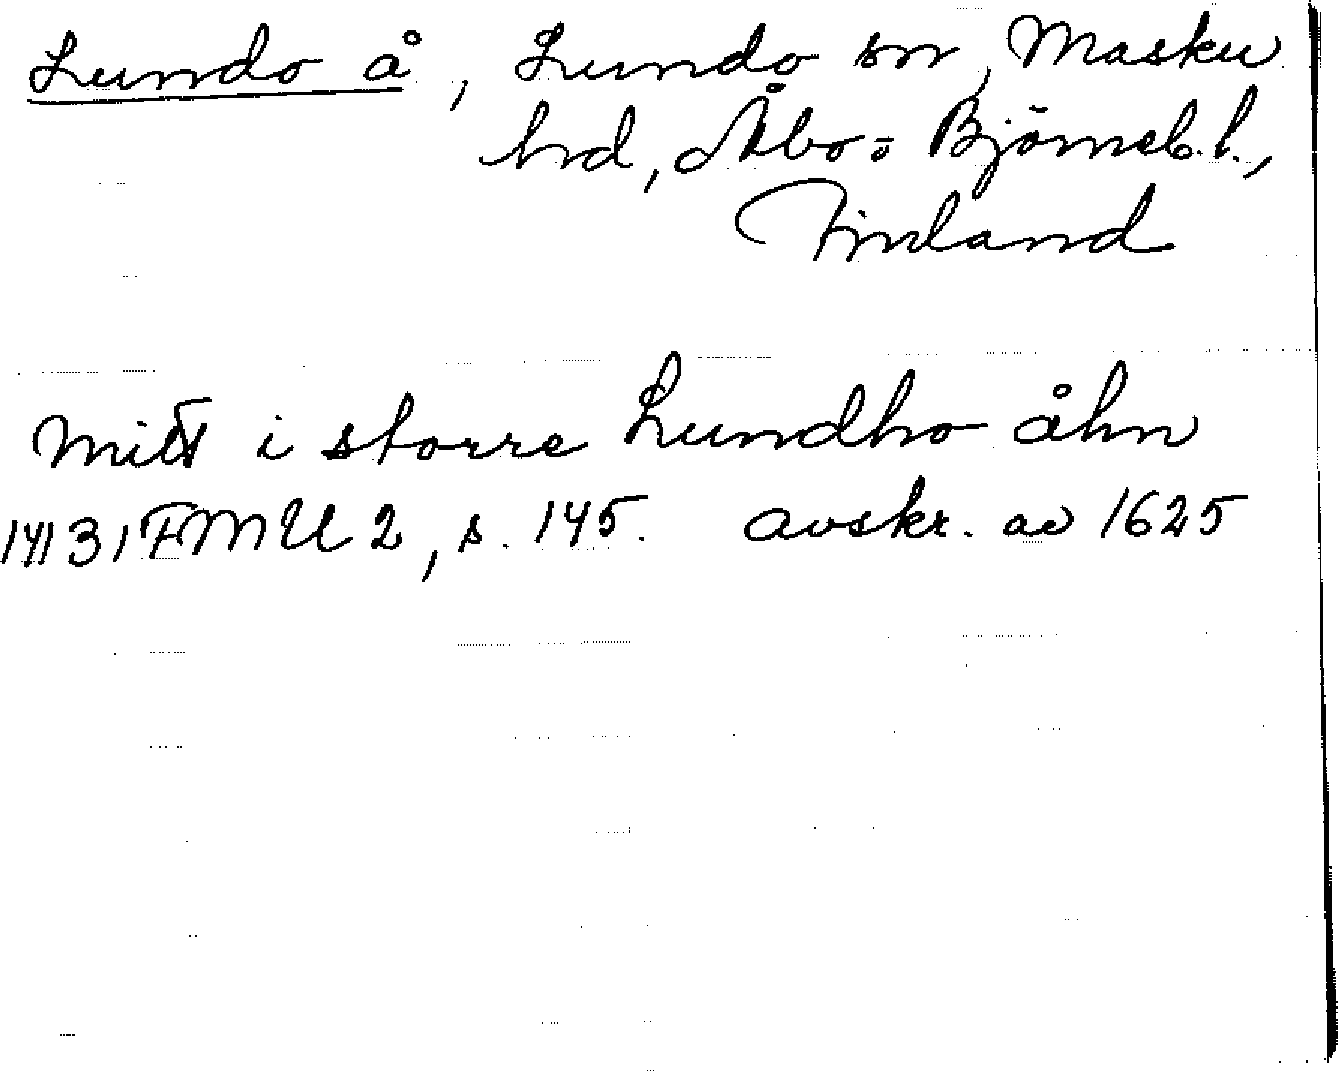 Lundo å, Lundo sn, Masku
hrd, Åbo- Björneb. l.,
Finland
mitt i storre Lundho åhn
FMU 2, s. 145. avskr. av 1625